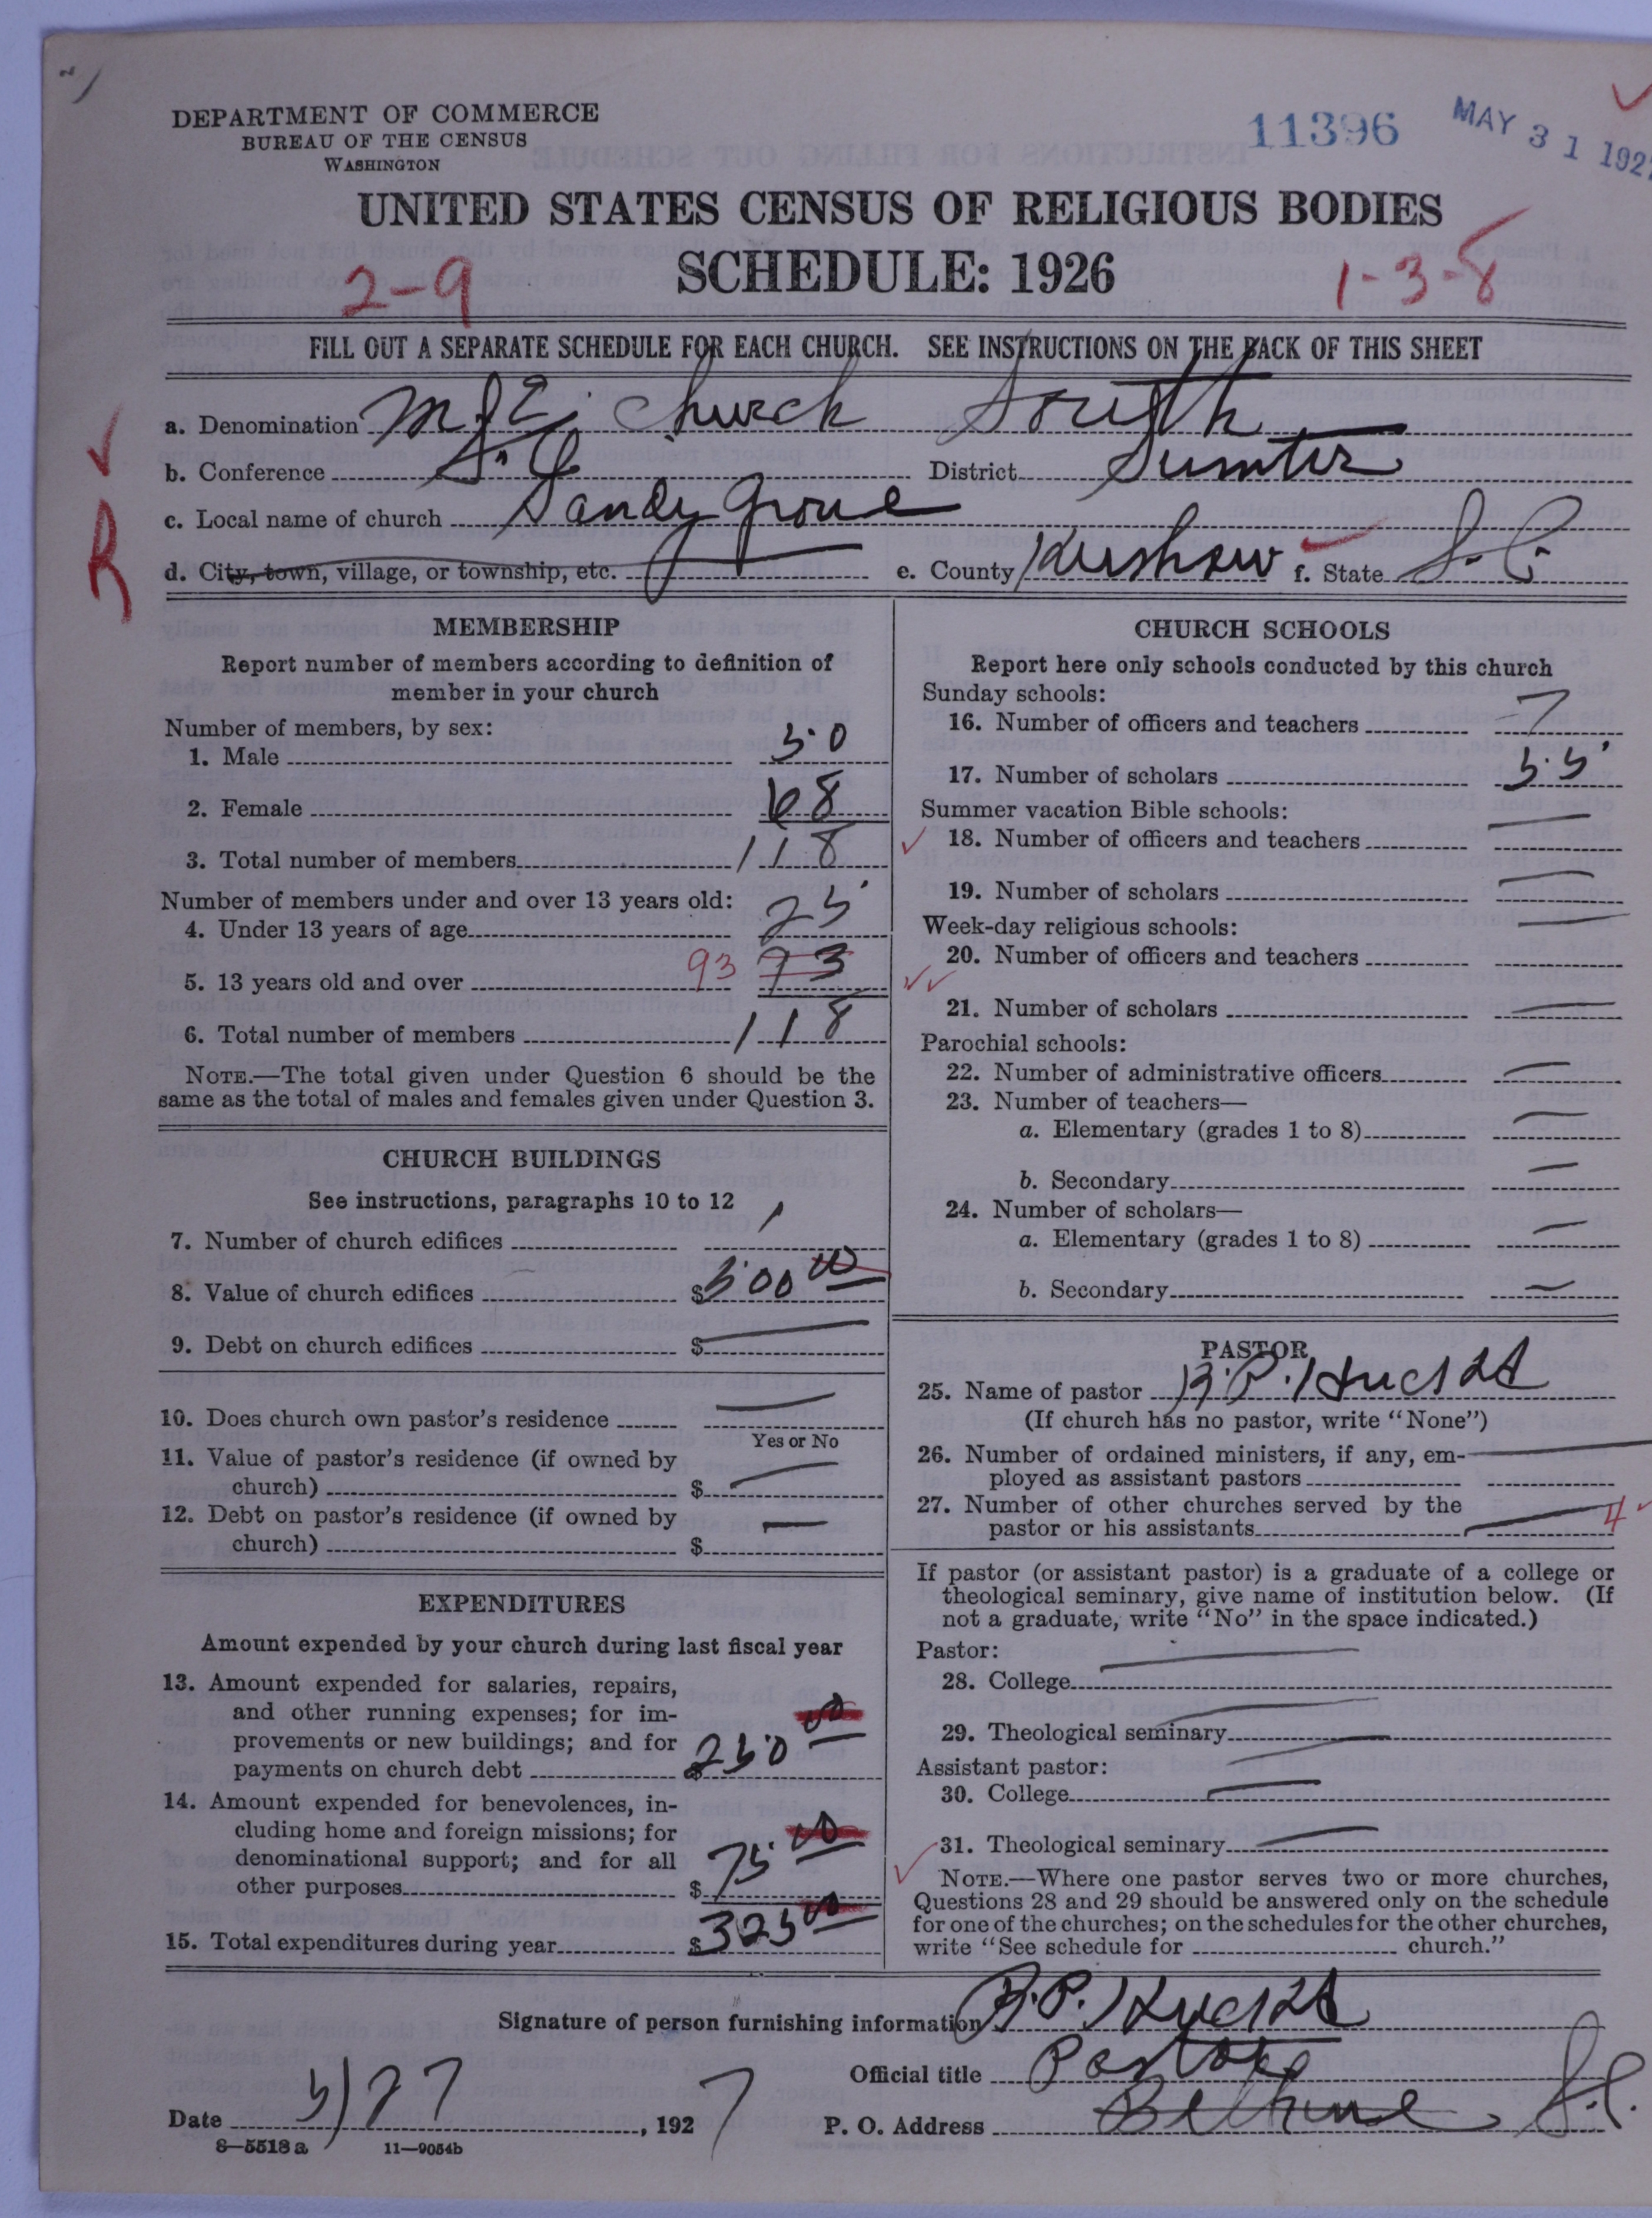 DEPARTMENT OF COMMERCE
BUREAU OF THE CENSUS
WASHINGTON
11396
MAY 31 192
UNITED STATES CENSUS OF RELIGIOUS BODIES
SCHEDULE: 1926
2-9
1-3-8
FILL OUT A SEPARATE SCHEDULE FOR EACH CHURCH. SEE INSTRUCTIONS ON THE BACK OF THIS SHEET
a. Denomination M. E. Church South
b. Conference S. C. District Sumter
c. Local name of church Sandy Grove
R
d. City, town, village, or township, etc. e. County Kershaw f. State S. C.
MEMBERSHIP
Report number of members according to definition of
member in your church
Number of members, by sex:
1. Male 50
2. Female 68
3. Total number of members 118
Number of members under and over 13 years old:
4. Under 13 years of age 25
5. 13 years old and over 93 93
6. Total number of members 118
NOTE.—The total given under Question 6 should be the
same as the total of males and females given under Question 3.
CHURCH BUILDINGS
See instructions, paragraphs 10 to 12
7. Number of church edifices 1
8. Value of church edifices $500 00
9. Debt on church edifices $ —
10. Does church own pastor's residence —
Yes or No
11. Value of pastor's residence (if owned by
church) $ —
12. Debt on pastor's residence (if owned by
church) $ —
EXPENDITURES
Amount expended by your church during last fiscal year
13. Amount expended for salaries, repairs,
and other running expenses; for im-
provements or new buildings; and for
payments on church debt $250 00
14. Amount expended for benevolences, in-
cluding home and foreign missions; for
denominational support; and for all
other purposes $75 00
15. Total expenditures during year $325 00
CHURCH SCHOOLS
Report here only schools conducted by this church
Sunday schools:
16. Number of officers and teachers 7
17. Number of scholars 55
Summer vacation Bible schools:
18. Number of officers and teachers —
19. Number of scholars —
Week-day religious schools:
20. Number of officers and teachers —
21. Number of scholars —
Parochial schools:
22. Number of administrative officers —
23. Number of teachers—
a. Elementary (grades 1 to 8) —
b. Secondary —
24. Number of scholars—
a. Elementary (grades 1 to 8) —
b. Secondary —
PASTOR
25. Name of pastor B. P. Hucks
(If church has no pastor, write "None")
26. Number of ordained ministers, if any, em-
ployed as assistant pastors —
27. Number of other churches served by the
pastor or his assistants — 4
If pastor (or assistant pastor) is a graduate of a college or
theological seminary, give name of institution below. (If
not a graduate, write "No" in the space indicated.)
Pastor:
28. College —
29. Theological seminary —
Assistant pastor:
30. College —
31. Theological seminary —
NOTE.—Where one pastor serves two or more churches,
Questions 28 and 29 should be answered only on the schedule
for one of the churches; on the schedules for the other churches,
write "See schedule for church."
Signature of person furnishing information B. P. Hucks
Official title Pastor
Date 5/27, 1927 P. O. Address Bethune, S. C.
8-5518 a 11-9054b